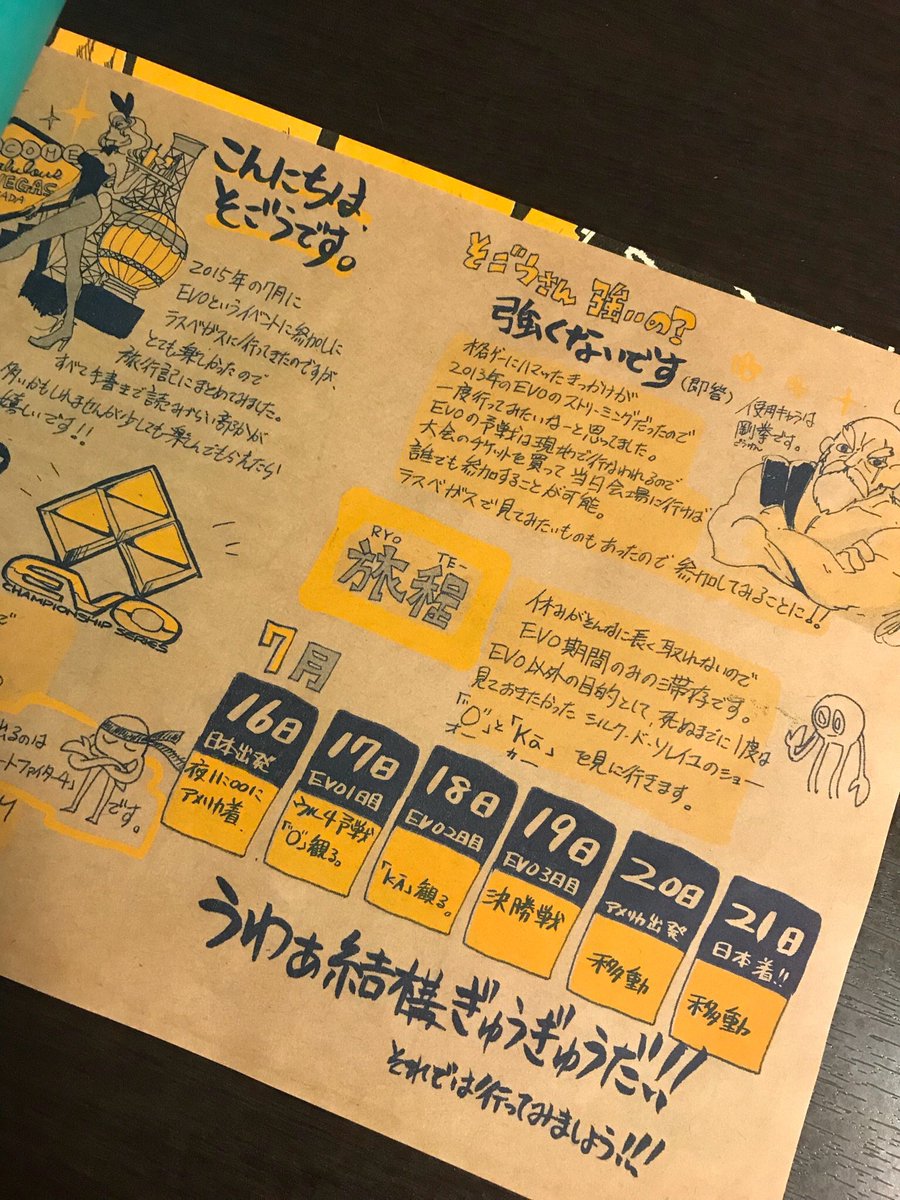 COME
abulous
VEGAS
ADA
こんにちは、
そごうです。
2015年の7月に
EVOというイベントに参加しに
ラスベガスに行ってきたのですが、
とても楽しかったので
旅行記にまとめてみました。
すべて手書きで読みづらい部分が
多いかもしれませんが少しでも楽しんでもらえたら
嬉しいです!!
EVO
CHAMPIONSHIP SERIES
出るのは
ートファイター4」
です。
そごうさん 強いの?
強くないです(即答)
格ゲーにハマったきっかけが
2013年のEVOのストリーミングだったので
一度行ってみたいなーと思ってました。
EVOの予戦は現地で行なわれるので
大会のチケットを買って当日会場に行けば
誰でも参加することが可能。
ラスベガスで見てみたいものもあったので 参加してみることに!!
使用キャラは
剛拳です。
ごうけん
RYO TE-
旅程
休みがそんなに長く取れないので
EVO期間のみの滞在です。
EVO以外の目的として、死ぬまでに1度は
見ておきたかった シルク・ド・ソレイユのショー
「"O"」と「Kā」 を見に行きます。
オー カー
7月
16日
日本出発
夜11:00に
アメリカ着
17日
EVO1日目
ウル4予戦
「"O"」観る。
18日
EVO2日目
「Kā」観る。
19日
EVO3日目
決勝戦
20日
アメリカ出発
移動
21日
日本着!!
移動
うわぁ結構ぎゅうぎゅうだ!!
それでは行ってみましょう!!!